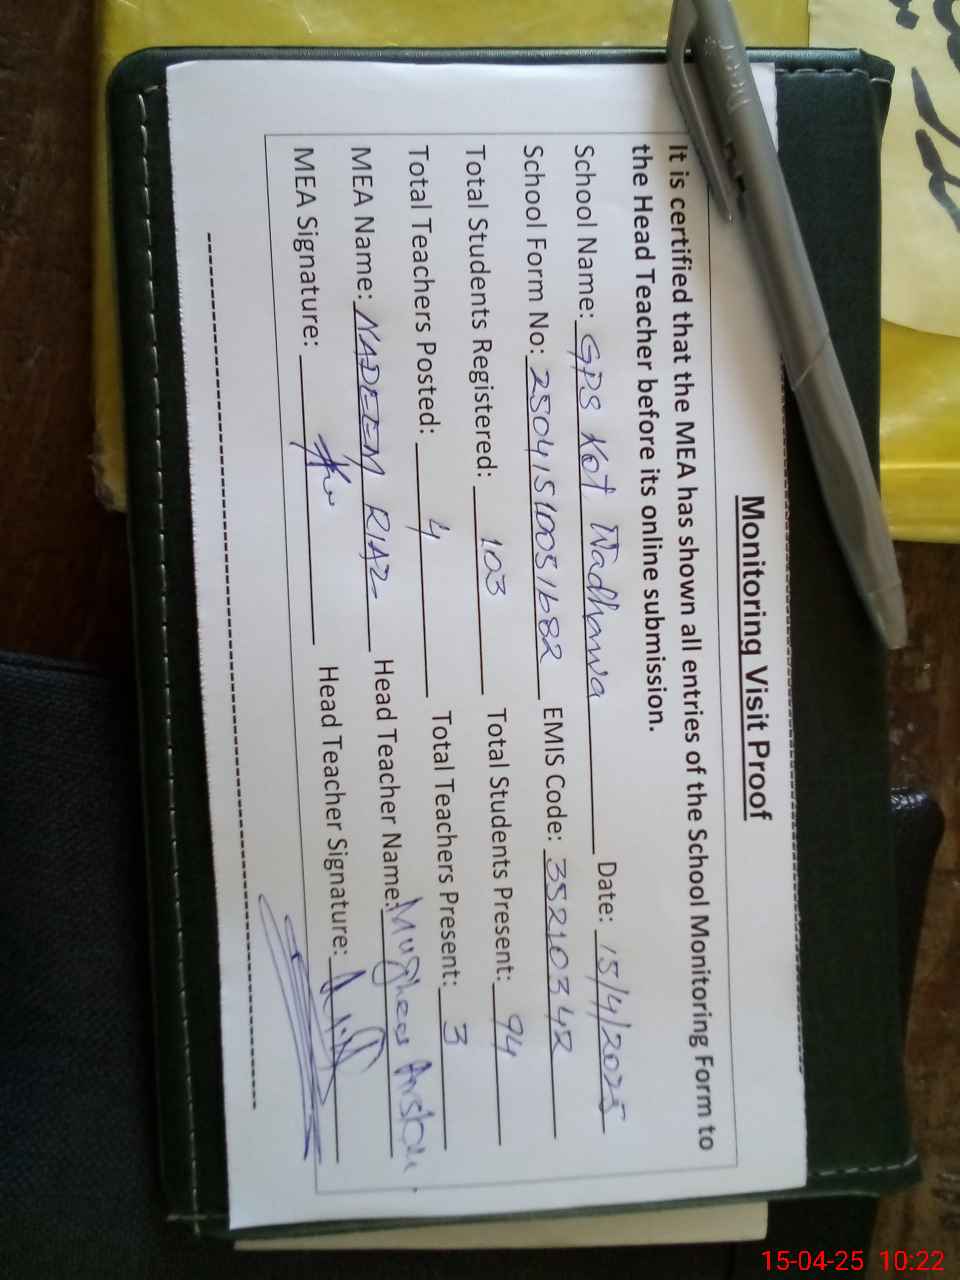 Monitoring Visit Proof
It is certified that the MEA has shown all entries of the School Monitoring Form to
the Head Teacher before its online submission.
School Name: GPS Kot Wadhawa Date: 15/4/2025
School Form No: 25041510051682 EMIS Code: 35210342
Total Students Registered: 103 Total Students Present: 94
Total Teachers Posted: 4 Total Teachers Present: 3
MEA Name: NADEEM RIAZ Head Teacher Name: Mughees
MEA Signature: Head Teacher Signature:
15-04-25 10:22